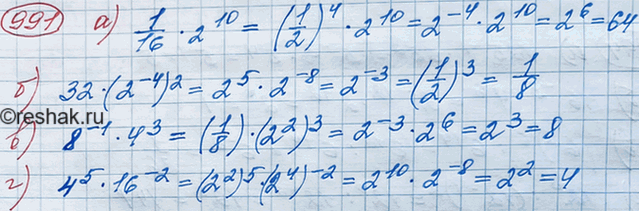 991 а) 1/16 · 2^10 = (1/2)^4 · 2^10 = 2^-4 · 2^10 = 2^6 = 64
б) 32 · (2^-4)^2 = 2^5 · 2^-8 = 2^-3 = (1/2)^3 = 1/8
©reshak.ru
в) 8^-1 · 4^3 = (1/8) · (2^2)^3 = 2^-3 · 2^6 = 2^3 = 8
г) 4^5 · 16^-2 = (2^2)^5 · (2^4)^-2 = 2^10 · 2^-8 = 2^2 = 4